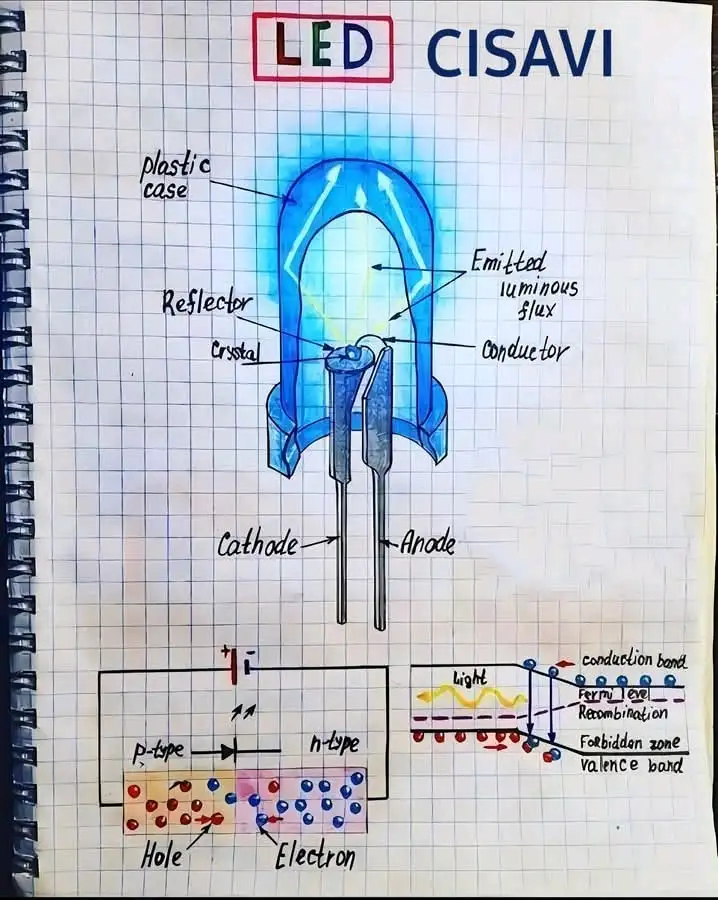 LED CISAVI
plastic
case
Emitted
luminous
flux
Reflector
Crystal
conductor
Cathode
Anode
+ -
p-type
n-type
Hole
Electron
conduction band
Light
Fermi level
Recombination
Forbidden zone
valence band